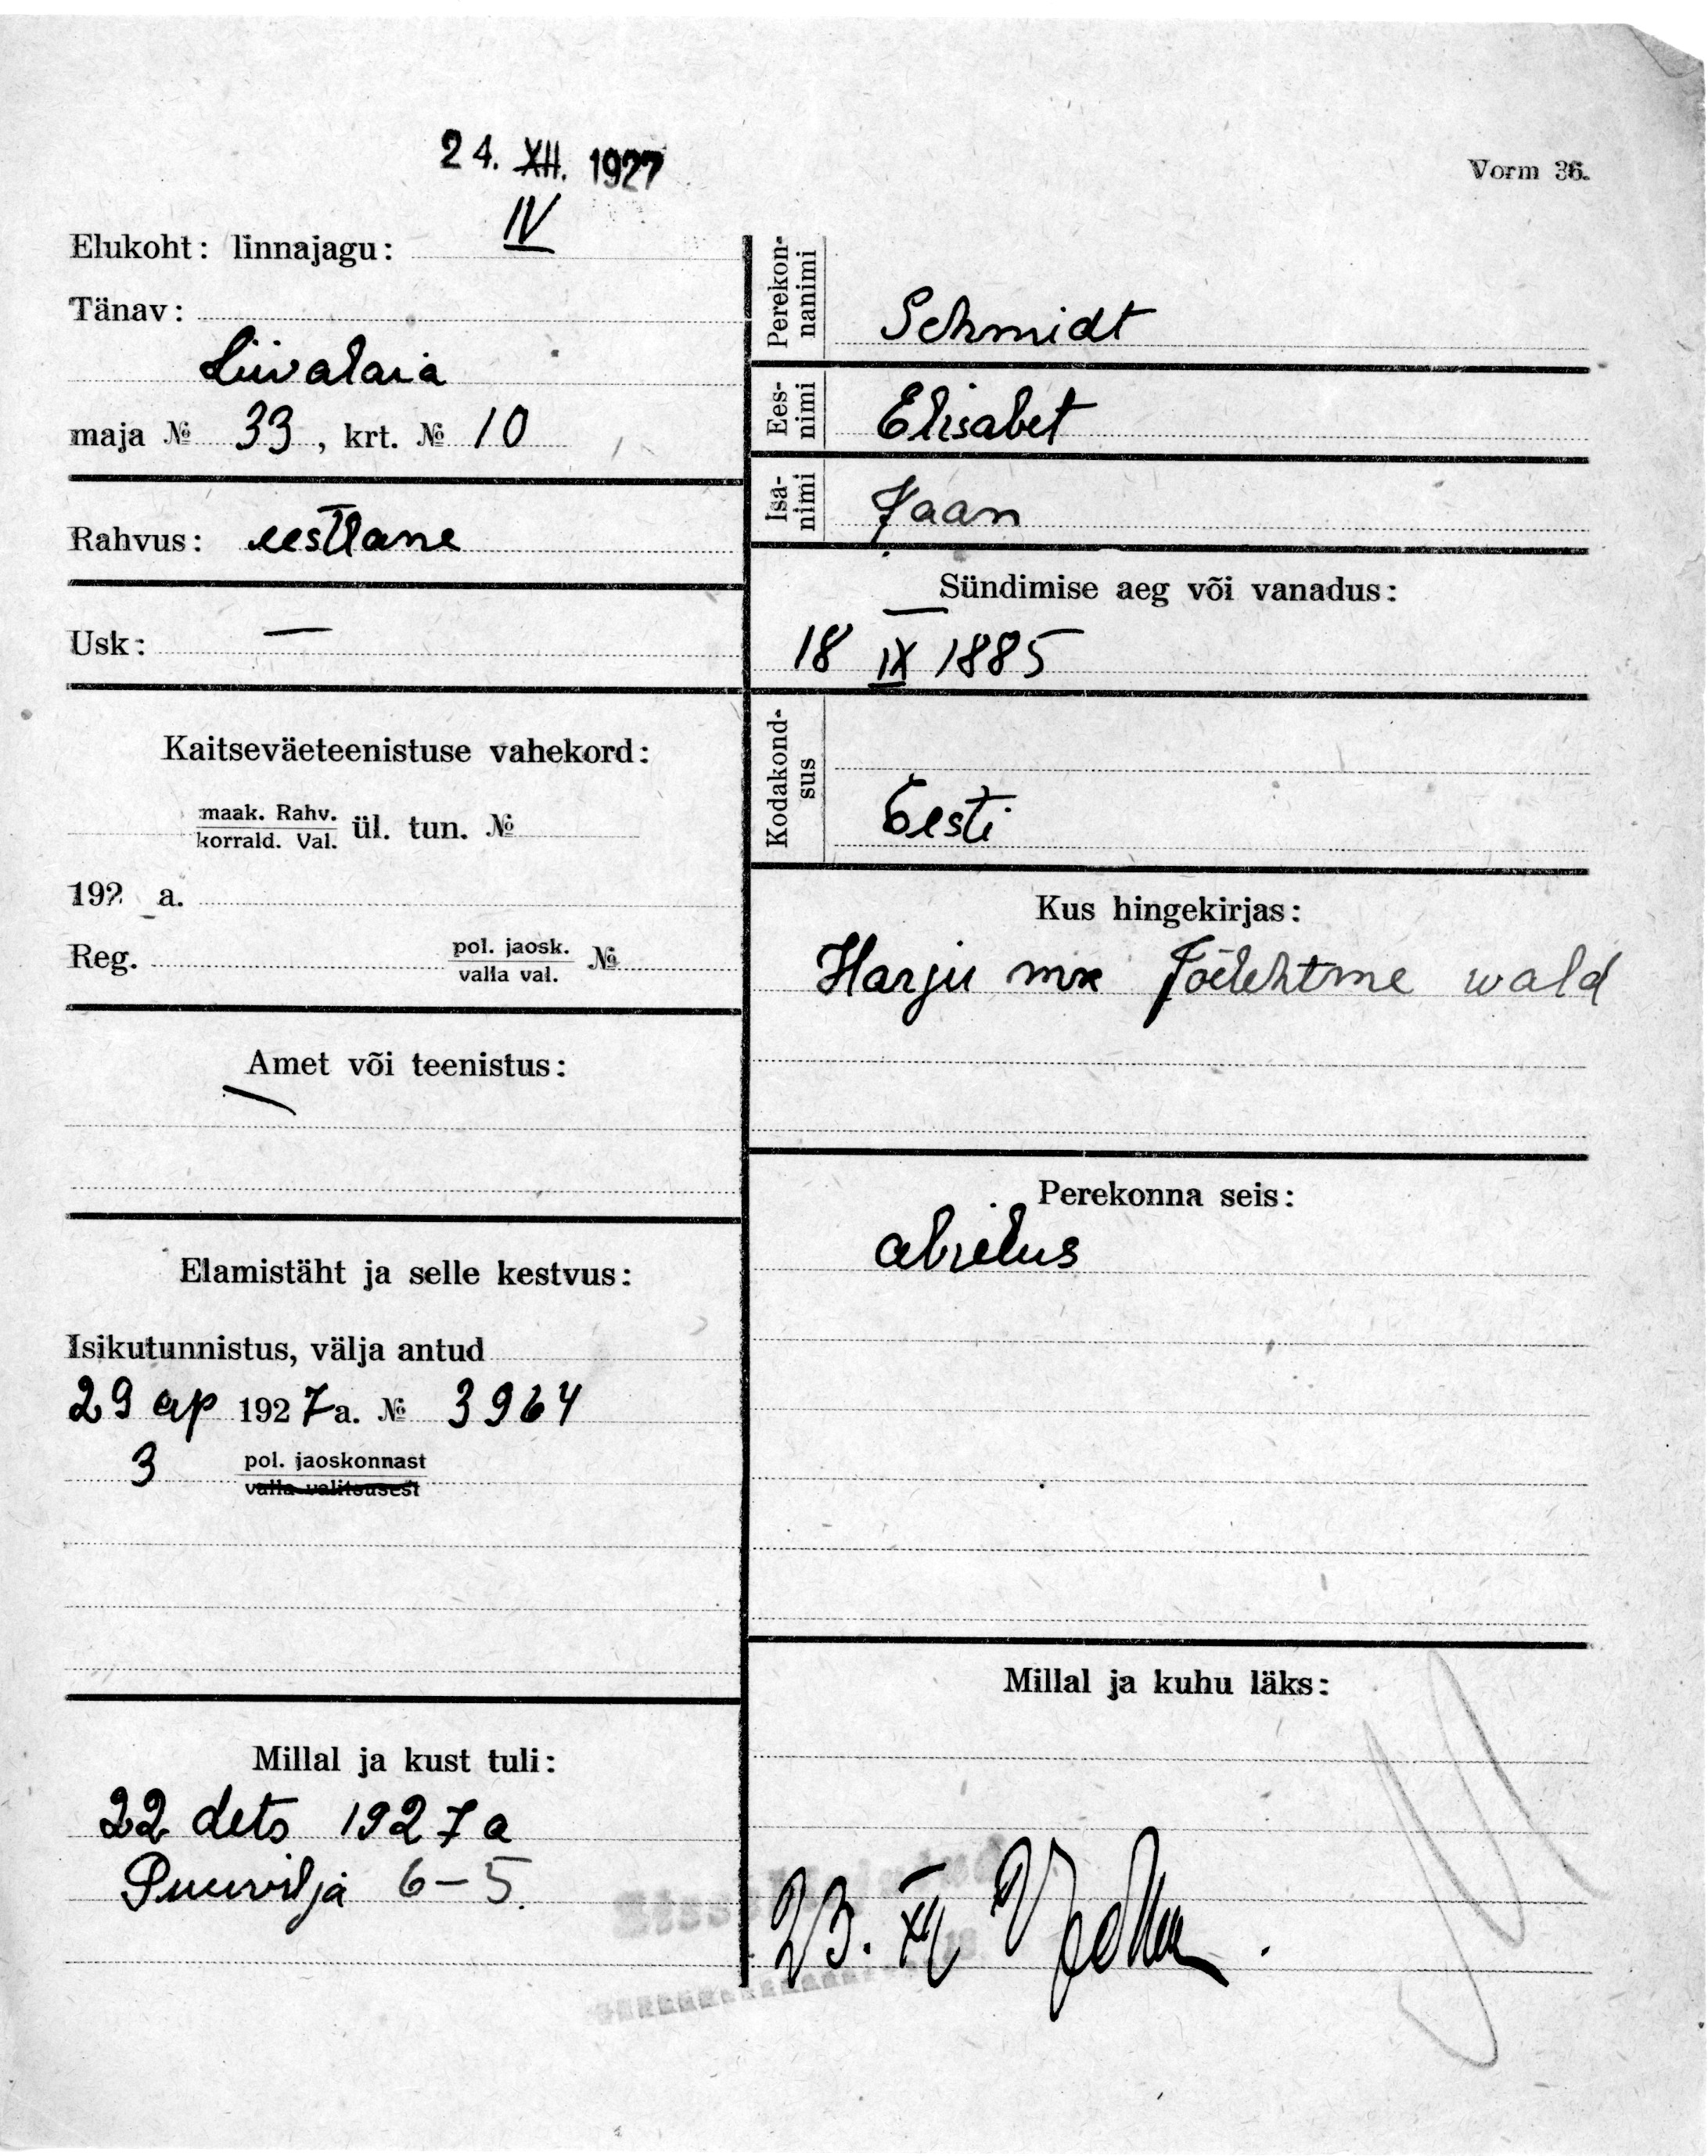 24. XII. 1927
Vorm 36.
Elukoht: linnajagu: IV
Tänav:
Liivalaia
maja № 33, krt. № 10
Rahvus: eestlane
Usk: —
Kaitseväeteenistuse vahekord:
maak. Rahv.
korrald. Val. ül. tun. №
192 a.
Reg. pol. jaosk.
valla val. №
Amet või teenistus:
—
Elamistäht ja selle kestvus:
Isikutunnistus, välja antud
29 ap 1927 a. № 3964
3 pol. jaoskonnast
valla valitsusest
Millal ja kust tuli:
22 dets 1927 a
Puuvilja 6–5.
Perekon-
nanimi Schmidt
Ees-
nimi Elisabet
Isa-
nimi Jaan
Sündimise aeg või vanadus:
18 IX 1885
Kodakond-
sus Eesti
Kus hingekirjas:
Harju mk Jõelehtme wald
Perekonna seis:
abielus
Millal ja kuhu läks:
23. XII